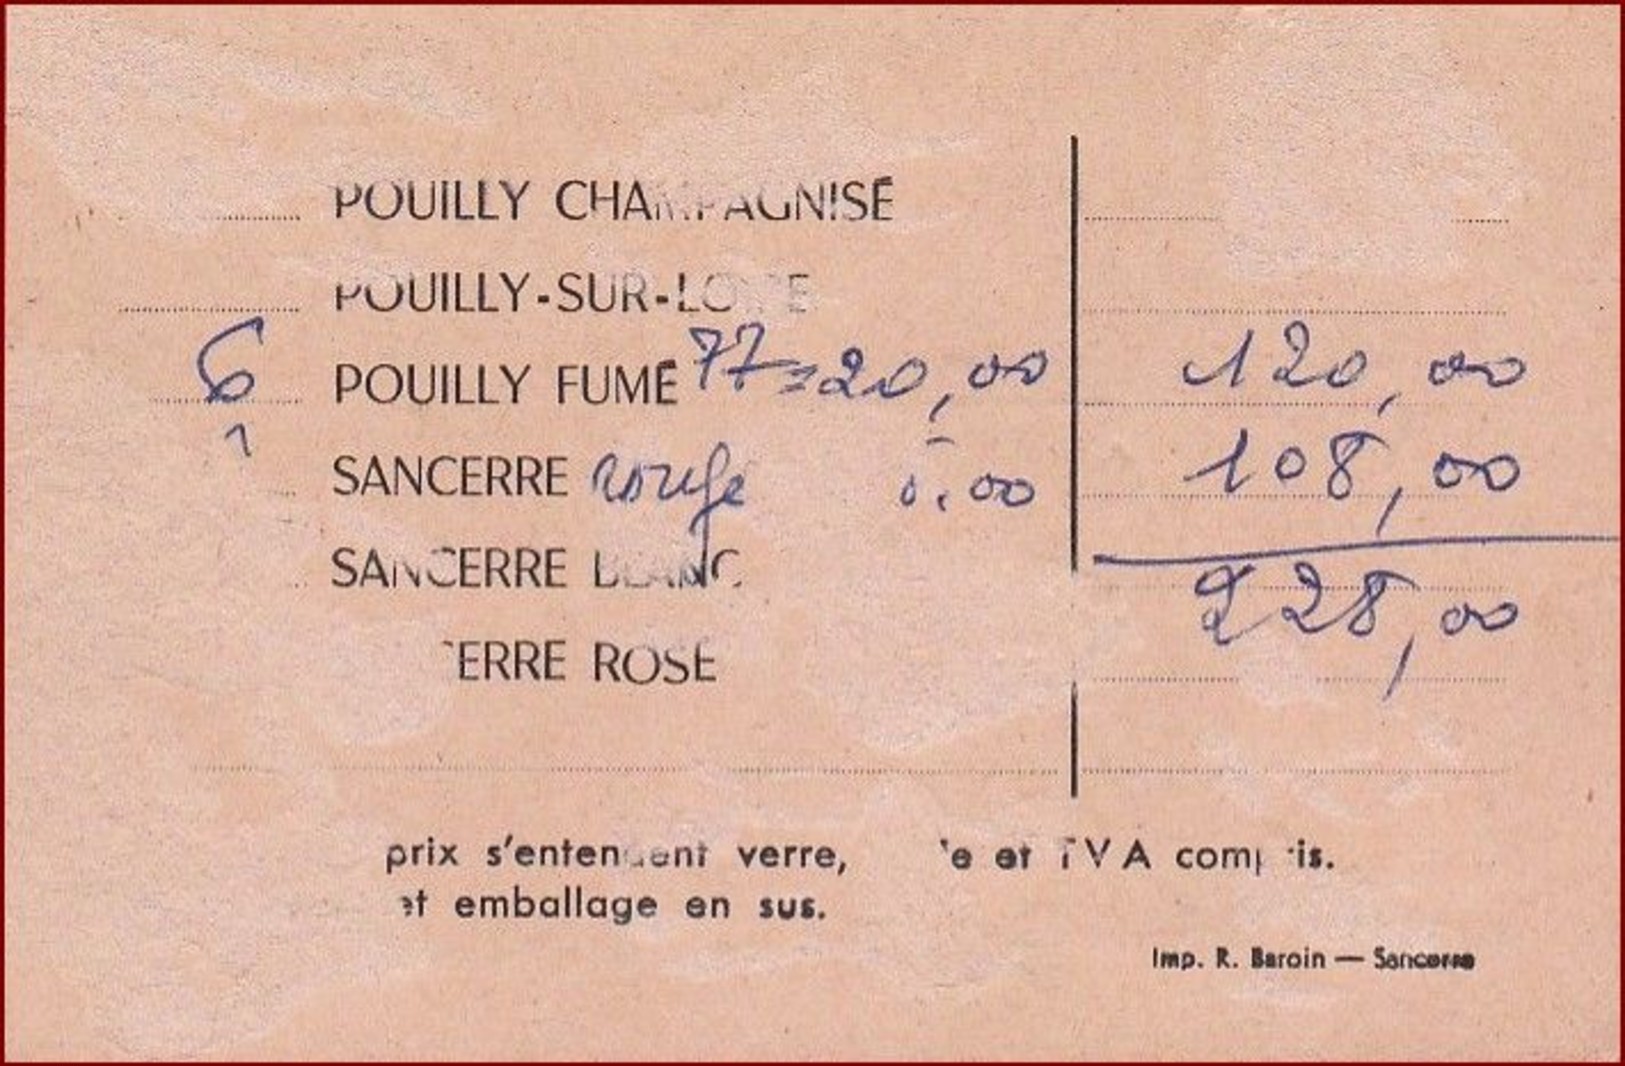 POUILLY CHAMPAGNISÉ
POUILLY-SUR-LOIRE
6 POUILLY FUMÉ 77 = 20,00 120,00
SANCERRE rouge 108,00
SANCERRE BLANC
228,00
ERRE ROSE
prix s'entendent verre, et TVA compris.
et emballage en sus.
Imp. R. Baroin — Sancerre